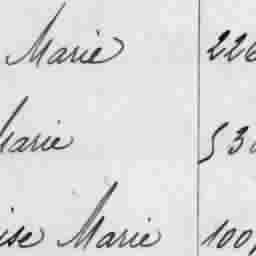 Marie 226
Marie 53
ise Marie 100